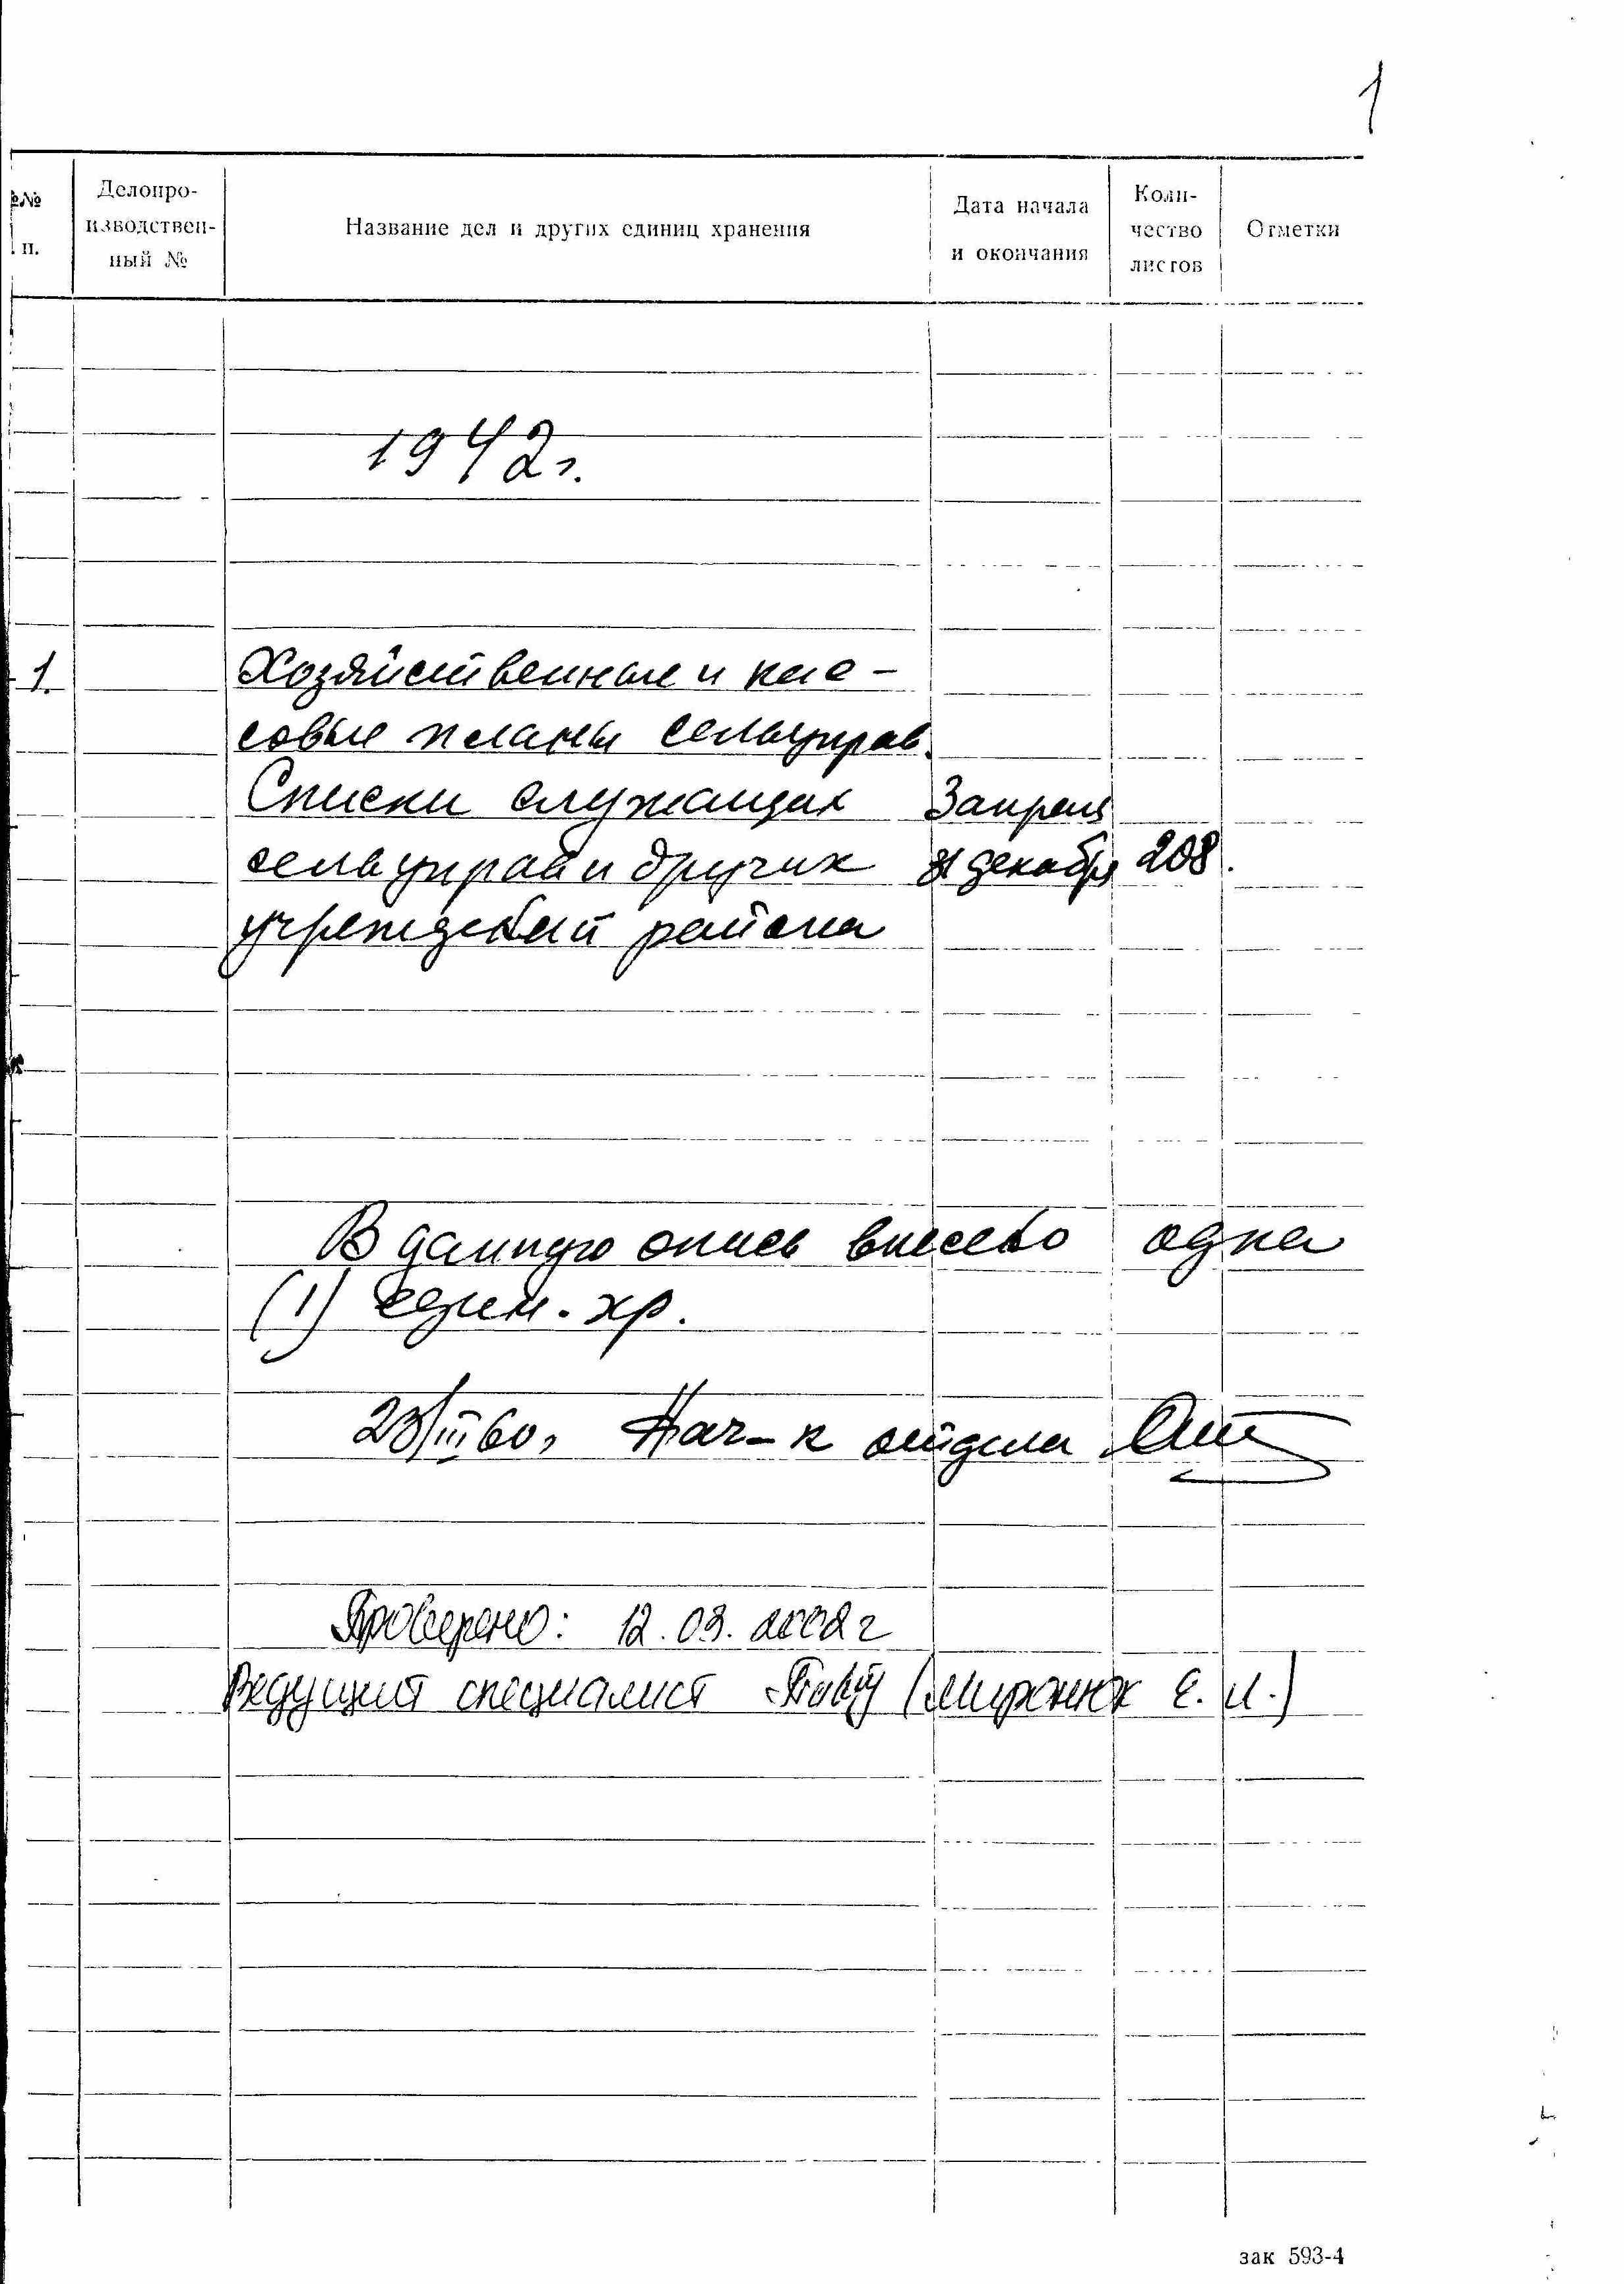 1
№№
п.
Делопро-
изводствен-
ный №
Название дел и других единиц хранения
Дата начала
и окончания
Коли-
чество
листов
Отметки
1942 г.
1. Хозяйственные и кас-
совые планы сельуправ.
Списки служащих 3 апреля
сельуправ и других 31 декабря 208.
учреждений района
В данную опись внесено одна
(1) един. хр.
23/III 60 г. Нач-к отдела
Проверено: 12.03.2002 г
Ведущий специалист (Миронюк Е. И.)
зак 593-4